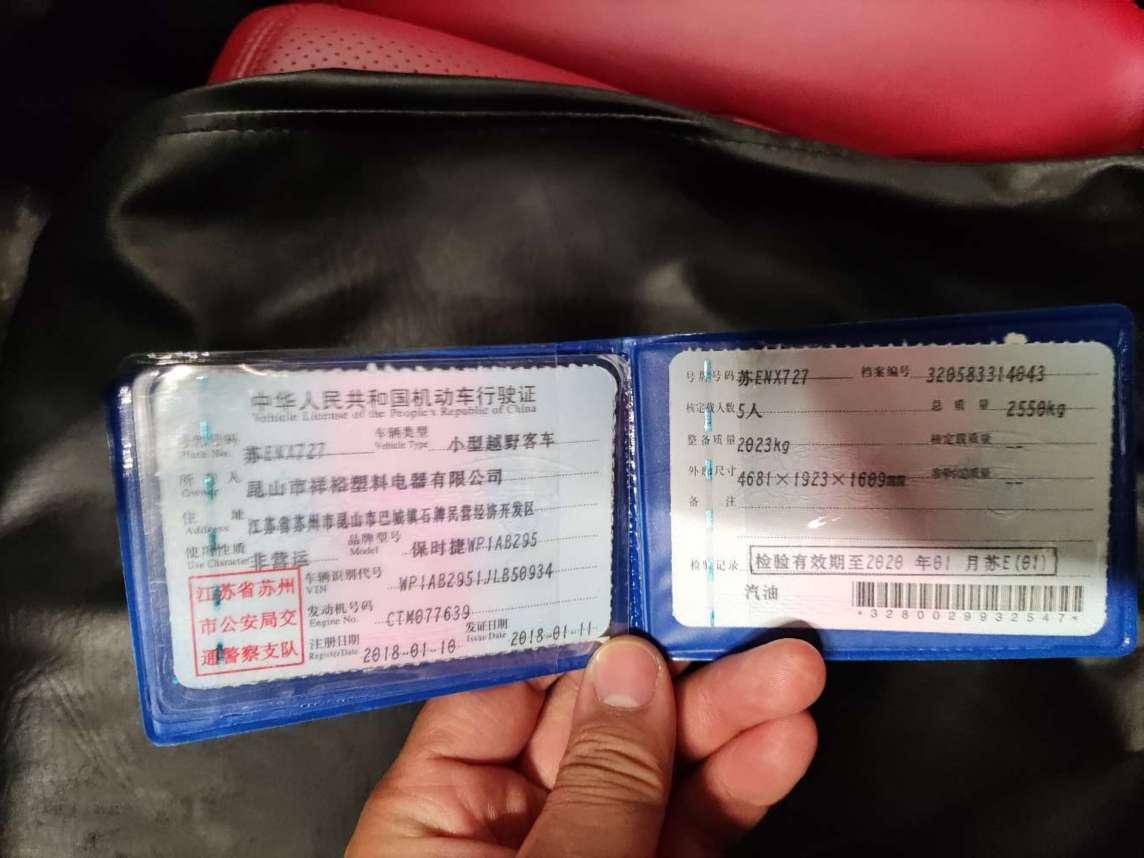 中华人民共和国机动车行驶证
Vehicle License of the People's Republic of China
号牌号码 苏ENX727 车辆类型 小型越野客车
Plate No. Vehicle Type
所有人 昆山市祥裕塑料电器有限公司
Owner
住址 江苏省苏州市昆山市巴城镇石牌民营经济开发区
Address
使用性质 非营运 品牌型号 保时捷WP1AB295
Use Character Model
江苏省苏州
市公安局交
通警察支队
车辆识别代号 WP1AB2951JLB50934
VIN
发动机号码 CTM077639
Engine No.
注册日期 2018-01-10 发证日期 2018-01-11
Register Date Issue Date
号牌号码 苏ENX727 档案编号 320583314043
核定载人数 5人 总质量 2550kg
整备质量 2023kg 核定载质量 --
外廓尺寸 4681×1923×1609mm 准牵引总质量 --
备注
检验记录 检验有效期至2020年01月苏E(01)
汽油
*3280029932547*